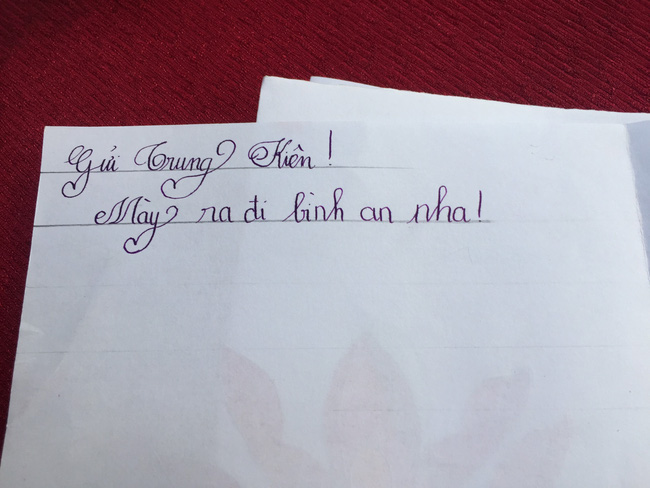 Gửi Trung Kiên!
Mày ra đi bình an nha!